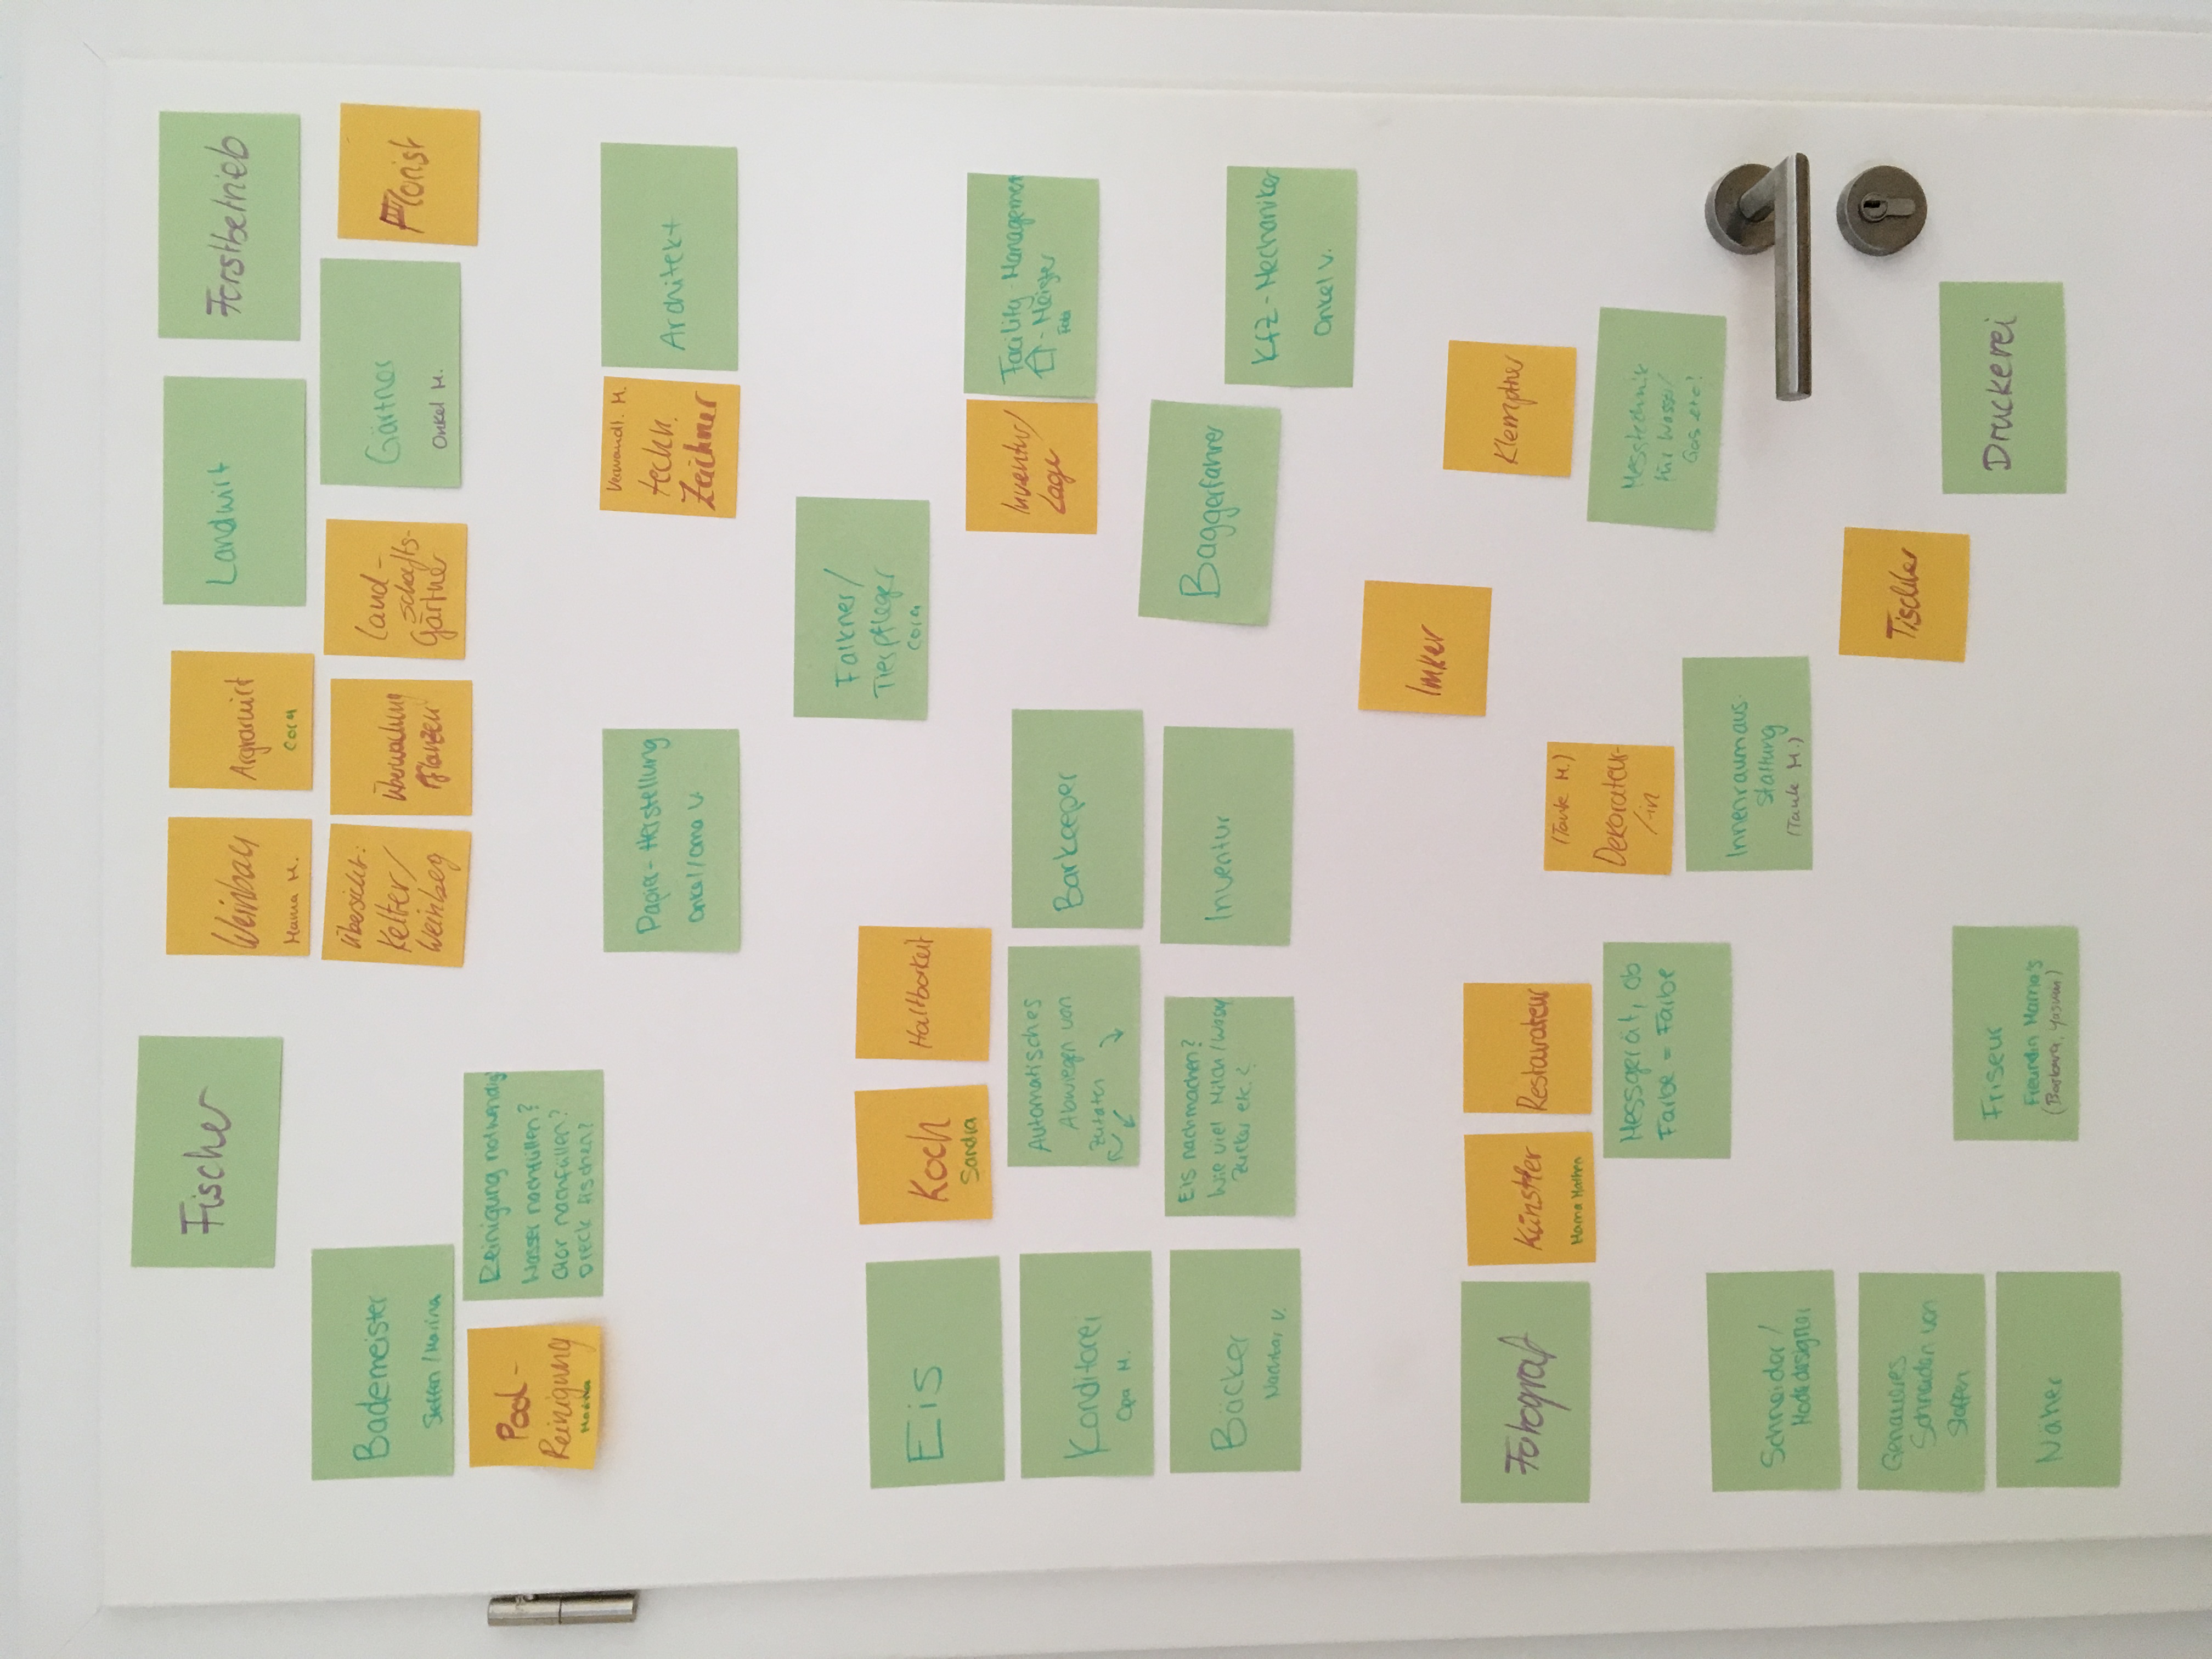 Fischer
Weinbau
Mama M.
Argrarwirt
Cora
Landwirt
Forstbetrieb
Bademeister
Steffen / Marina
Übersicht:
Kelter/
Weinberg
Überwachung
Pflanzen
Land-
schafts-
Gärtner
Gärtner
Onkel M.
Florist
Pool-
Reinigung
Marina
Reinigung notwendig?
Wasser nachfüllen?
Chlor nachfüllen?
Dreck fischen?
Papier-Herstellung
Onkel/Oma V.
Verwandt. M.
techn.
Zeichner
Architekt
Falkner/
Tierpfleger
Cora
Eis
Koch
Sandra
Haltbarkeit
Inventur/
Lage
Facility-Management
-Meister
Konditorei
Opa M.
Automatisches
Abwiegen von
Zutaten
Barkeeper
Bäcker
Nachbar V.
Eis nachmachen?
Wie viel Milch/
Zucker etc.?
Inventur
Baggerfahrer
Kfz-Mechaniker
Onkel V.
Imker
Klemptner
Fotograf
Künstler
Mama
Restaurateur
(Tante M.)
Dekorateur-
/-in
Messgerät, ob
Farbe = Farbe
Messtechnik
für Wasser/
Gas etc!
Innenraumaus-
stattung
(Tante M.)
Schneider/
Modedesigner
Genaueres
Schneiden von
Stoffen
Tischler
Näher
Friseur
Freundin Mama's
(Barbara, Yasmin)
Druckerei